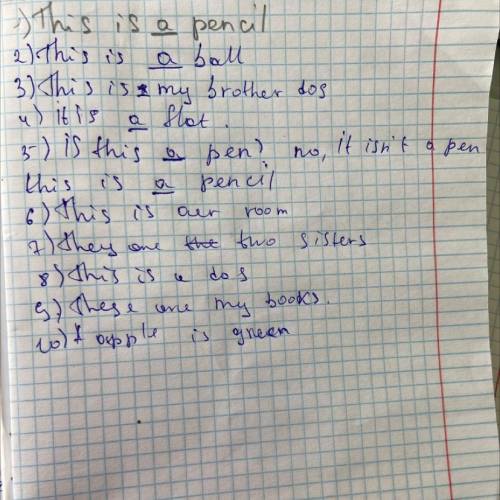 1) This is a pencil
2) This is a ball
3) This is my brother dog
4) it is a flat.
5) is this a pen? no, it isn't a pen
this is a pencil
6) This is our room
7) They are the two sisters
8) This is a dog
9) These are my books.
10) apple is green